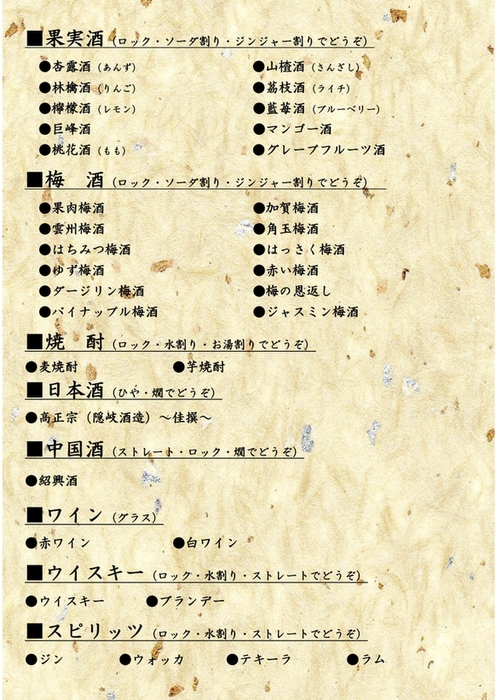 ■果実酒（ロック・ソーダ割り・ジンジャー割りでどうぞ）
●杏露酒（あんず） ●山樝酒（さんざし）
●林檎酒（りんご） ●茘枝酒（ライチ）
●檸檬酒（レモン） ●藍苺酒（ブルーベリー）
●巨峰酒 ●マンゴー酒
●桃花酒（もも） ●グレープフルーツ酒
■梅　酒（ロック・ソーダ割り・ジンジャー割りでどうぞ）
●果肉梅酒 ●加賀梅酒
●雲州梅酒 ●角玉梅酒
●はちみつ梅酒 ●はっさく梅酒
●ゆず梅酒 ●赤い梅酒
●ダージリン梅酒 ●梅の恩返し
●パイナップル梅酒 ●ジャスミン梅酒
■焼　酎（ロック・水割り・お湯割りでどうぞ）
●麦焼酎 ●芋焼酎
■日本酒（ひや・燗でどうぞ）
●高正宗（隠岐酒造）～佳撰～
■中国酒（ストレート・ロック・燗でどうぞ）
●紹興酒
■ワイン（グラス）
●赤ワイン ●白ワイン
■ウイスキー（ロック・水割り・ストレートでどうぞ）
●ウイスキー ●ブランデー
■スピリッツ（ロック・水割り・ストレートでどうぞ）
●ジン ●ウォッカ ●テキーラ ●ラム